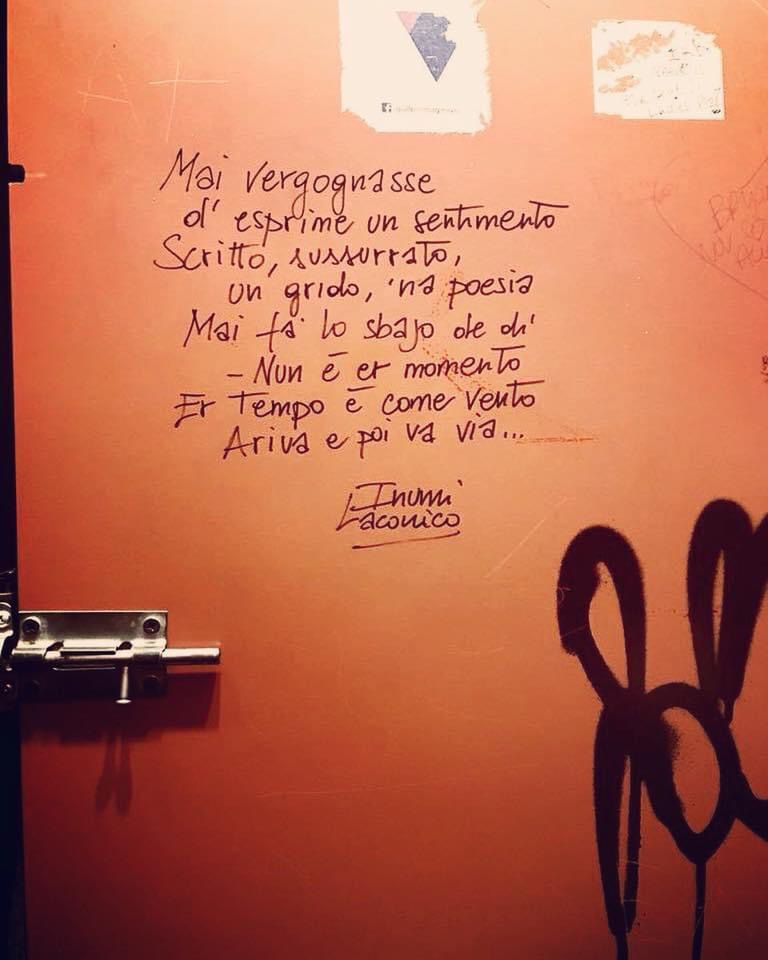 A +
Mai vergognasse
d' esprime un sentimento
Scritto, sussurrato,
un grido, 'na poesia
Mai fa' lo sbajo de di'
- Nun è er momento
Er Tempo è come vento
Ariva e poi va via...
Inumi
Laconico